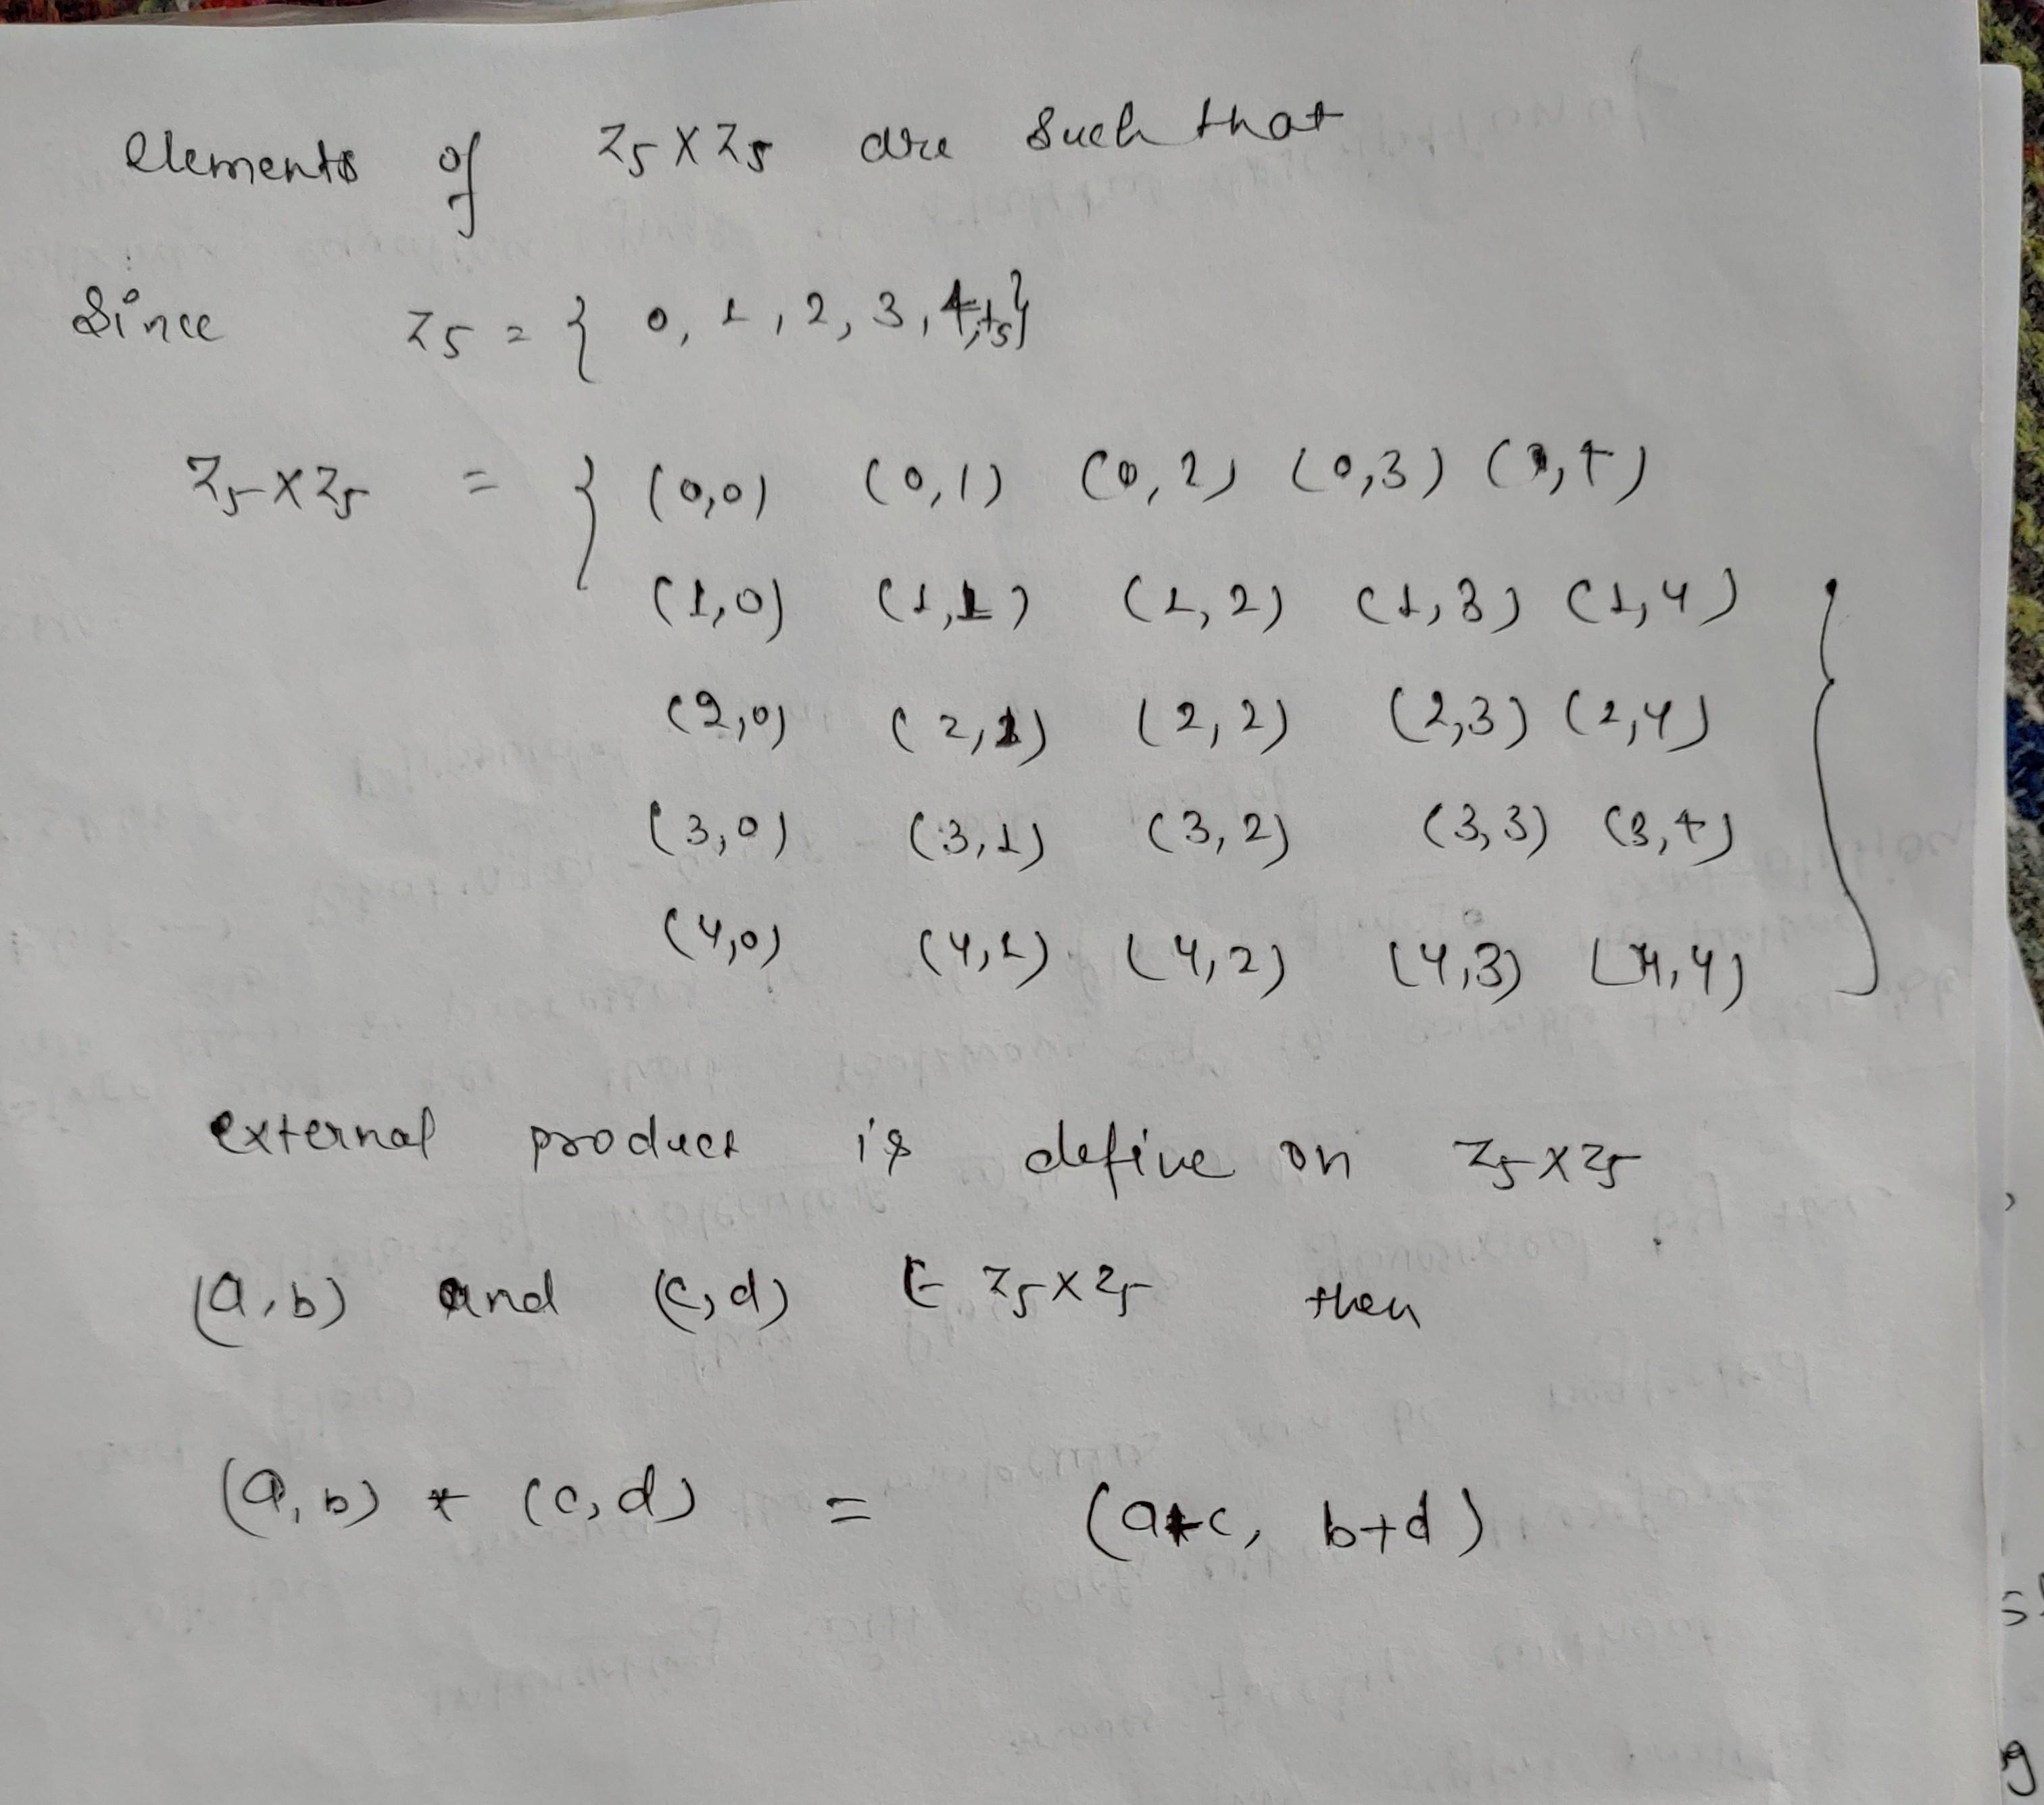 elements of Z5 X Z5 are such that
Since Z5 = { 0, 1, 2, 3, 4, +5}
Z5 X Z5 = { (0,0) (0,1) (0,2) (0,3) (0,4)
(1,0) (1,1) (1,2) (1,3) (1,4)
(2,0) (2,1) (2,2) (2,3) (2,4)
(3,0) (3,1) (3,2) (3,3) (3,4)
(4,0) (4,1) (4,2) (4,3) (4,4) }
external product is define on Z5 X Z5
(a,b) and (c,d) ∈ Z5 X Z5 then
(a,b) * (c,d) = (a+c, b+d)